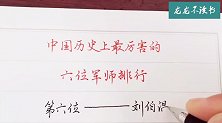 龙龙不读书
中国历史上最厉害的
六位军师排行
第六位——刘伯温